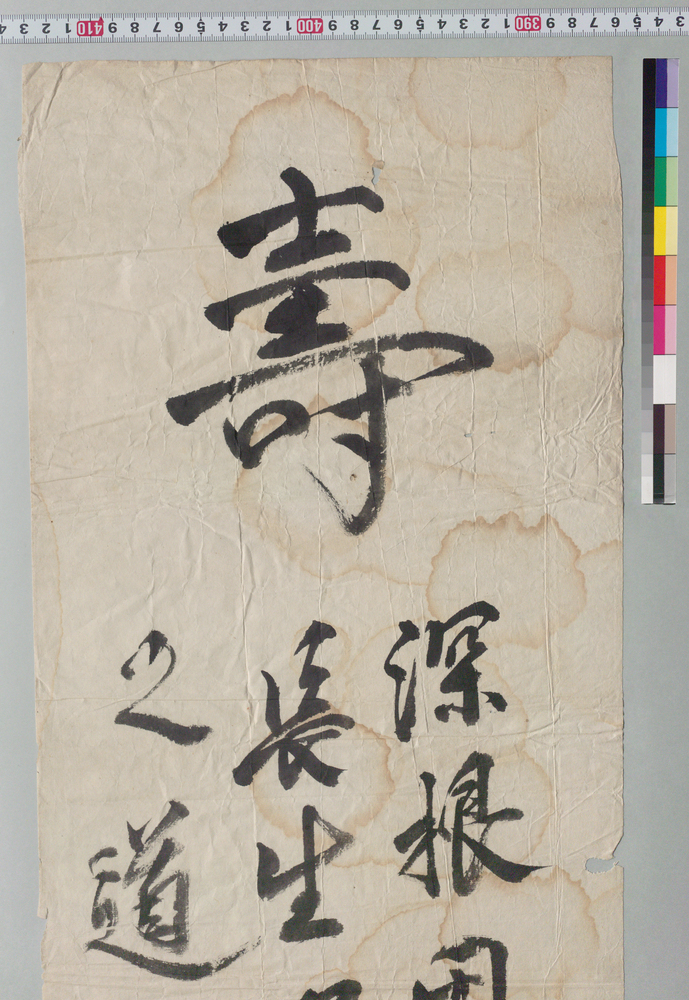 3 4 5 6 7 8 9 390 1 2 3 4 5 6 7 8 9 400 1 2 3 4 5 6 7 8 9 410 1 2 3 4
壽
深根
長生
之道